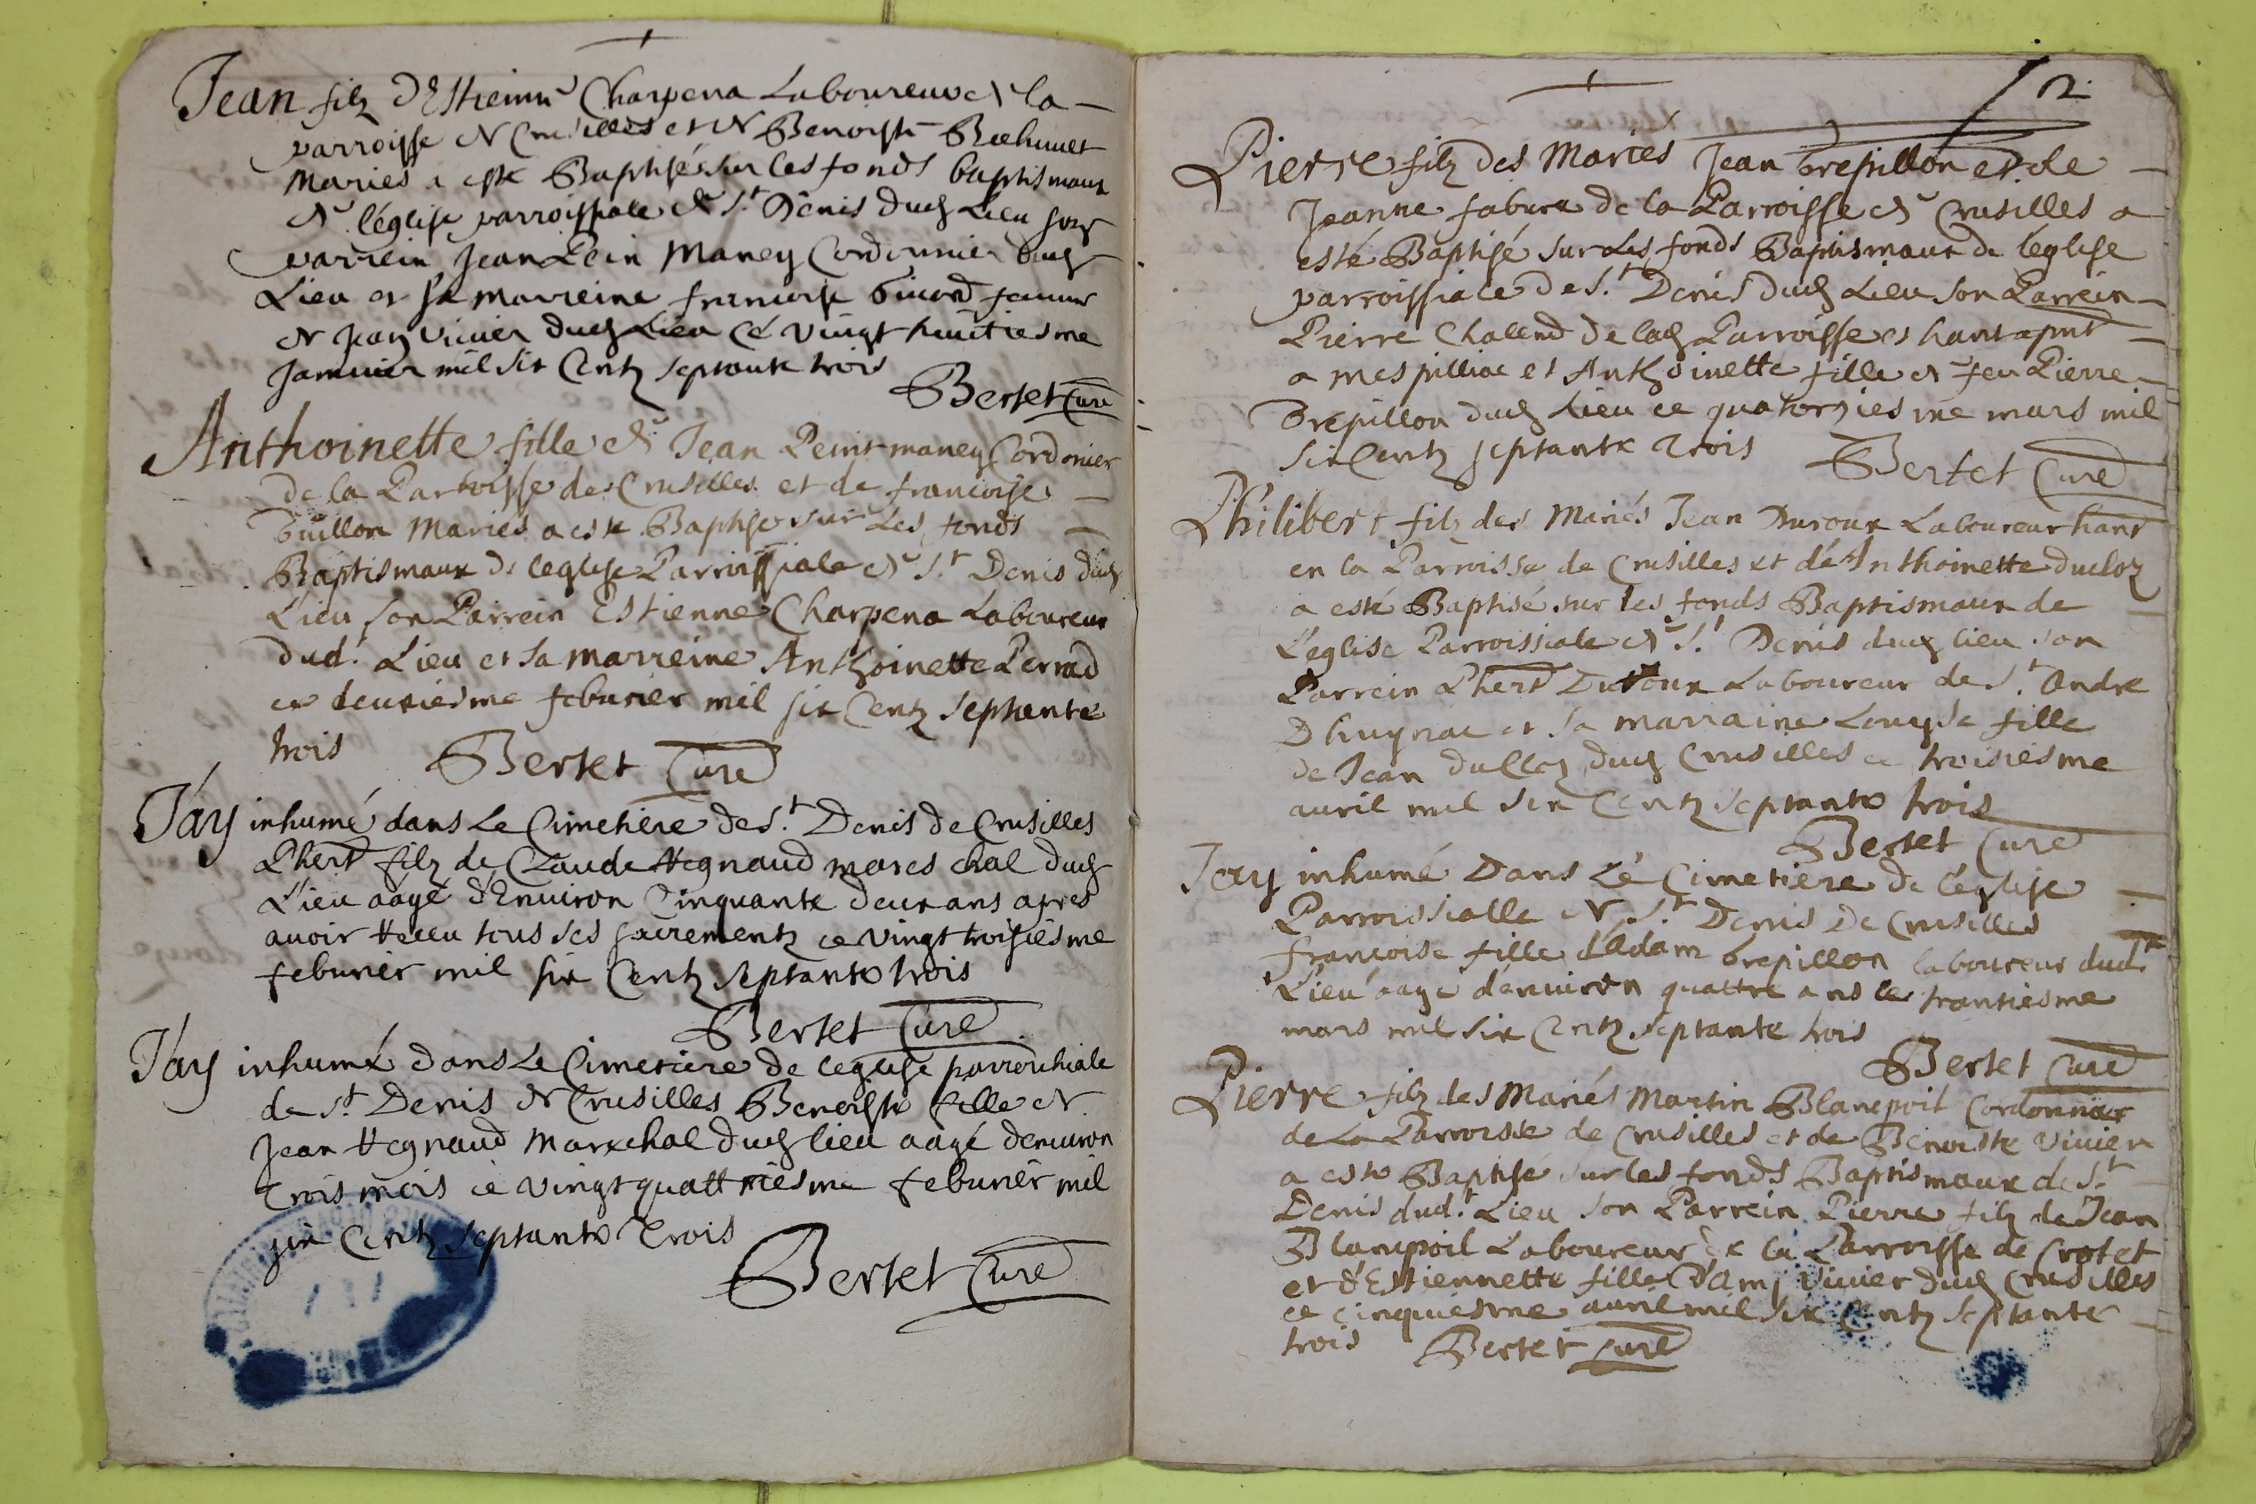 Jean filz d'Estienne Charpena Laboureur de la
parroisse de Crusilles et de Benoiste
Mariés a esté Baptisé sur les fonds baptismaux
de l'église parroissiale de St Denis dud Lieu son
parrein Jean Pein Maney Cordonnier dud
Lieu et sa marreine francoise femme
de Jean Vivier dud Lieu ce vingt huitiesme
Janvier mil six Centz septante trois
Bertet Curé
Anthoinette fille de Jean Peint maney Cordonier
de la Parroisse de Crusilles et de francoise
Guillon Mariés a esté Baptisé sur Les fonds
Baptismaux de leglise Parroissiale de St Denis dud
Lieu son Parrein Estienne Charpena Laboureur
dud. Lieu et sa marreine Anthoinette Perrad
ce deuxiesme febvrier mil six Centz septante
trois Bertet Curé
J'ay inhumé dans Le Cimetiere de St Denis de Crusilles
Phert filz de Claude Regnaud mareschal dud
Lieu aagé d'Environ Cinquante deux ans apres
avoir Receu tous ses sacrementz ce vingt troisiesme
febvrier mil six Centz septante trois
Bertet Curé
J'ay inhumé dans Le Cimetiere de leglise parrochiale
de St Denis de Crusilles Benoiste fille de
Jean Regnaud Mareschal dud lieu aagé denviron
trois mois ce vingt quattriesme febvrier mil
six Centz septante trois
Bertet Curé
2.
Pierre filz des Mariés Jean brepillon et de
Jeanne fabvre de la Parroisse de Crusilles a
esté Baptisé sur Les fonds Baptismaux de l'église
parroissiale de St Denis dud Lieu son Parrein
Pierre Chalend de lad Parroisse
a mespilliac et Anthoinette fille de feu Pierre
brepillon dud Lieu ce quatorziesme mars mil
six Centz septante trois Bertet Curé
Philibert filz des Mariés Jean Duroux Laboureur
en la Parroisse de Crusilles et de Anthoinette ducloz
a esté Baptisé sur les fonds Baptismaux de
L'eglise Parroissiale de St Denis dud lieu son
Parrein Phert Duroux Laboureur de St Andre
Dhuyriac et sa marraine Louyse fille
de Jean ducloz dud Crusilles ce troisiesme
avril mil six Centz septante trois
Bertet Curé
J'ay inhumé Dans Le Cimetiere de l'église
Parroissialle de St Denis De Crusilles
francoise fille d'Adam brepillon laboureur dud.
Lieu aagé d'environ quattre ans le trantiesme
mars mil six Centz septante trois
Bertet Curé
Pierre filz des Mariés Martin Blancpoil Cordonnier
de La Parroisse de Crusilles et de Benoiste Vivier
a esté Baptisé sur les fonds Baptismaux de St
Denis dud. Lieu son Parrein Pierre filz de Jean
Blancpoil Laboureur de la Parroisse de Crotet
et d'Estiennette fille d'Amj Vivier dud Crusilles
ce cinquiesme avril mil six Centz septante
trois Bertet Curé